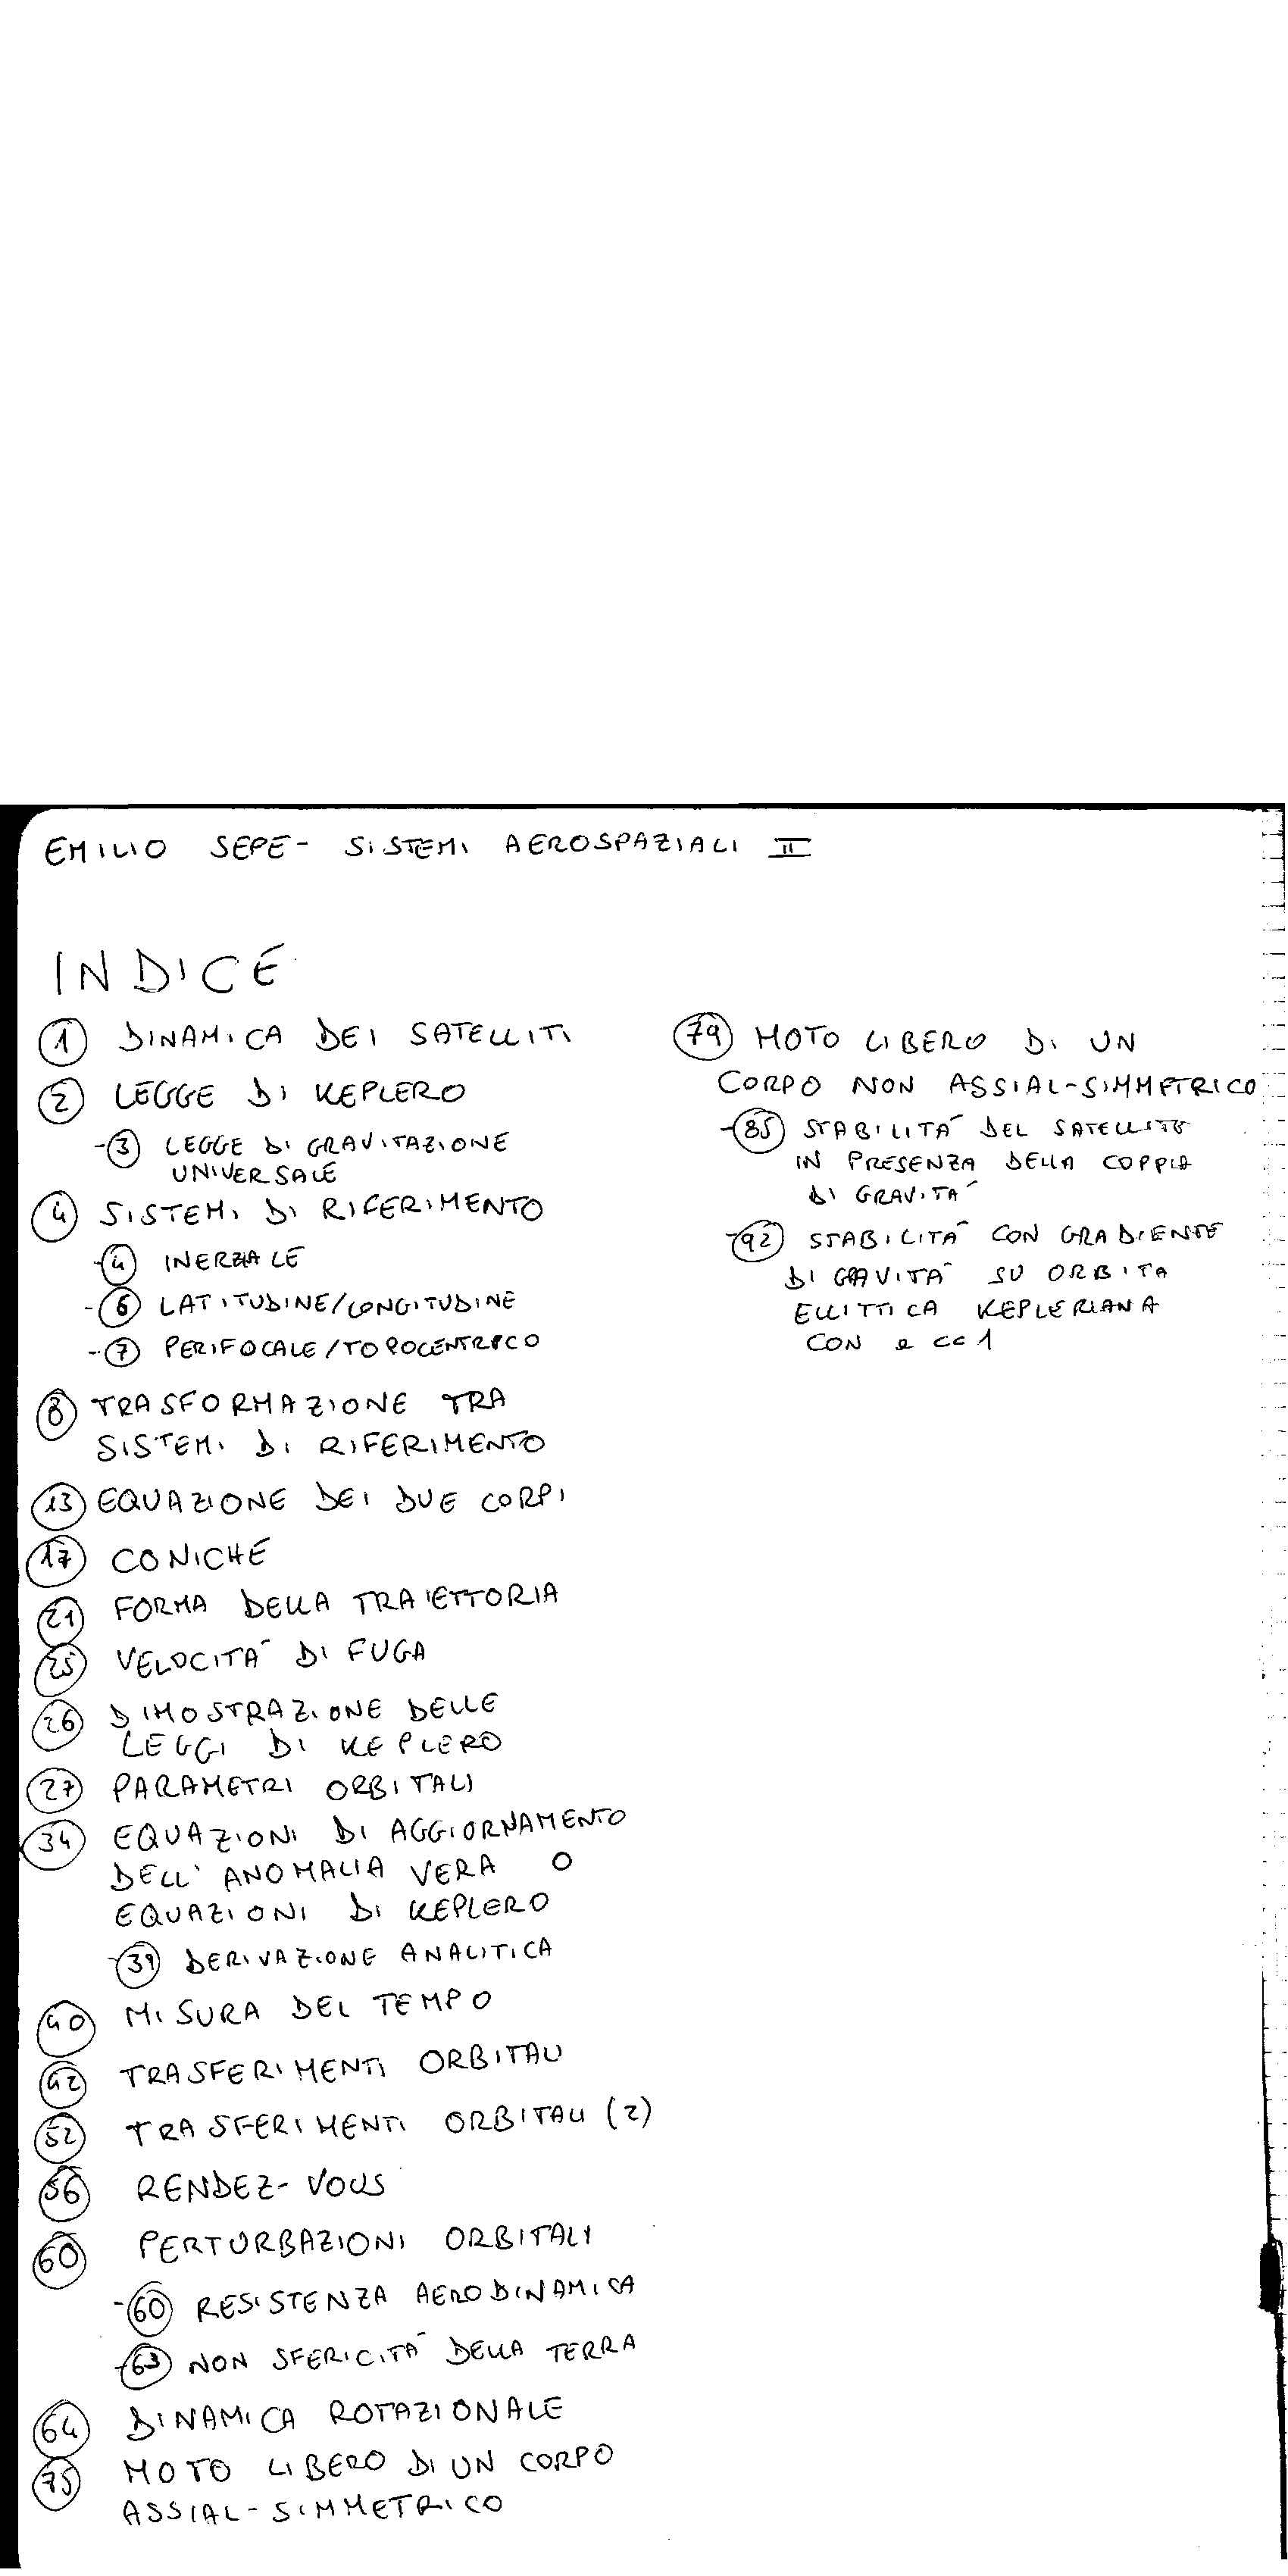 EMILIO SEPE - SISTEMI AEROSPAZIALI II
INDICE
1 DINAMICA DEI SATELLITI
2 LEGGE DI KEPLERO
-3 LEGGE DI GRAVITAZIONE
UNIVERSALE
4 SISTEMI DI RIFERIMENTO
-4 INERZIALE
-6 LATITUDINE/LONGITUDINE
-7 PERIFOCALE/TOPOCENTRICO
8 TRASFORMAZIONE TRA
SISTEMI DI RIFERIMENTO
13 EQUAZIONE DEI DUE CORPI
17 CONICHE
21 FORMA DELLA TRAIETTORIA
25 VELOCITÀ DI FUGA
26 DIMOSTRAZIONE DELLE
LEGGI DI KEPLERO
27 PARAMETRI ORBITALI
34 EQUAZIONI DI AGGIORNAMENTO
DELL'ANOMALIA VERA O
EQUAZIONI DI KEPLERO
-39 DERIVAZIONE ANALITICA
40 MISURA DEL TEMPO
42 TRASFERIMENTI ORBITALI
52 TRASFERIMENTI ORBITALI (2)
56 RENDEZ-VOUS
60 PERTURBAZIONI ORBITALI
-60 RESISTENZA AERODINAMICA
-63 NON SFERICITÀ DELLA TERRA
64 DINAMICA ROTAZIONALE
75 MOTO LIBERO DI UN CORPO
ASSIAL-SIMMETRICO
79 MOTO LIBERO DI UN
CORPO NON ASSIAL-SIMMETRICO
-85 STABILITÀ DEL SATELLITE
IN PRESENZA DELLA COPPIA
DI GRAVITÀ
-92 STABILITÀ CON GRADIENTE
DI GRAVITÀ SU ORBITA
ELLITTICA KEPLERIANA
CON e << 1